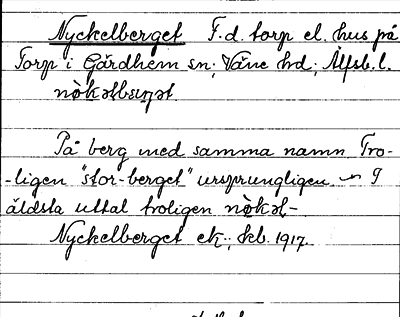 Nyckelberget F.d. torp el. hus på
Torp i Gärdhem sn, Väne hd; Älfsb. l.
På berg med samma namn Tro-
-ligen "stor-berget" ursprungligen. I
äldsta uttal troligen
Nyckelberget ek., kb. 1917.